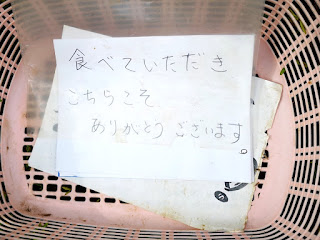 食べていただき
こちらこそ
ありがとうございます。